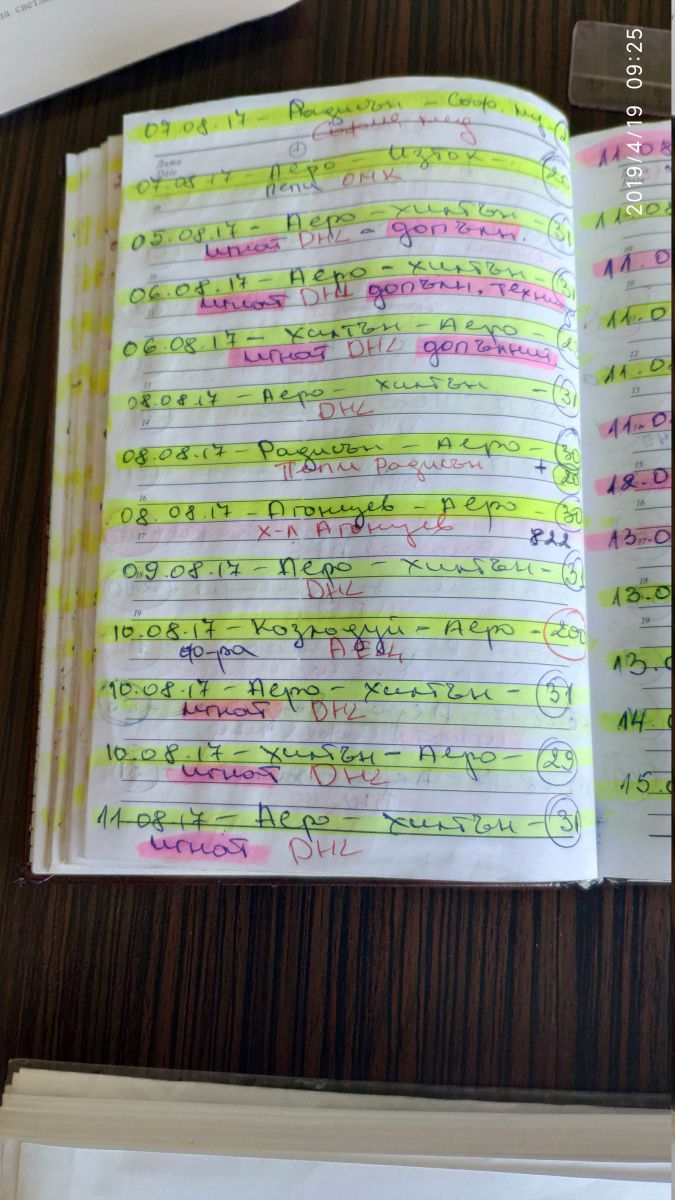 на светла
2019/4/19 09:25
07.08.17 - Радисън - Соф. му
София мед
Дата
Date
07.08.17 - Аеро - Изток -
Пепи ОМК
05.08.17 - Аеро - Хилтън - 31
Игнат DHL - допълн.
06.08.17 - Аеро - Хилтън - 31
Игнат DHL допълн. техни
06.08.17 - Хилтън - Аеро -
Игнат DHL допълни
08.08.17 - Аеро - Хилтън - 31
DHL
08.08.17 - Радисън - Аеро - 30
Пепи Радисън +20
08.08.17 - Агонцев - Аеро - 30
Х-л Агонцев 822
09.08.17 - Аеро - Хилтън - 31
DHL
10.08.17 - Козлодуй - Аеро - 200
ф-ра АЕЦ
10.08.17 - Аеро - Хилтън - 31
Игнат DHL
10.08.17 - Хилтън - Аеро - 29
Игнат DHL
11.08.17 - Аеро - Хилтън - 31
Игнат DHL
11.08
11.08
11.0
11.0
11.08
11.0
12.0
13.0
13.0
13.0
14.0
15.0